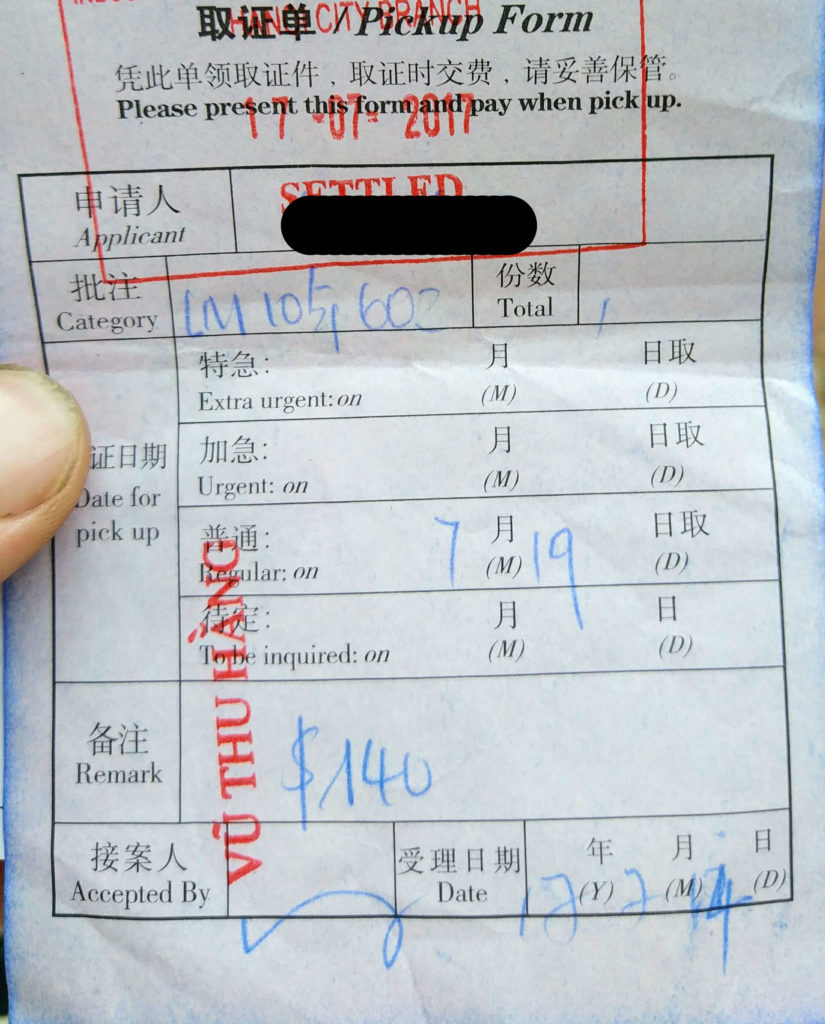 HANOI CITY BRANCH
取证单 / Pickup Form
凭此单领取证件，取证时交费，请妥善保管。
Please present this form and pay when pick up.
17 -07- 2017
SETTLED
申请人
Applicant
批注
Category
份数
Total
特急: 月 日取
Extra urgent: on (M) (D)
加急: 月 日取
Urgent: on (M) (D)
证日期
Date for
pick up
普通: 7 月 19 日取
Regular: on (M) (D)
待定: 月 日
To be inquired: on (M) (D)
VŨ THU HẰNG
备注
Remark
$140
接案人
Accepted By
受理日期
Date
年 月 日
(Y) (M) (D)
17 7 14